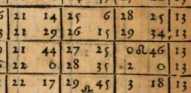 21 14 25 6 28 25 13
21 29 26 15 29 34 13
21 44 27 25 0♌46 13
22 0 28 35 2 0 13
22 17 29 45 3 18 13